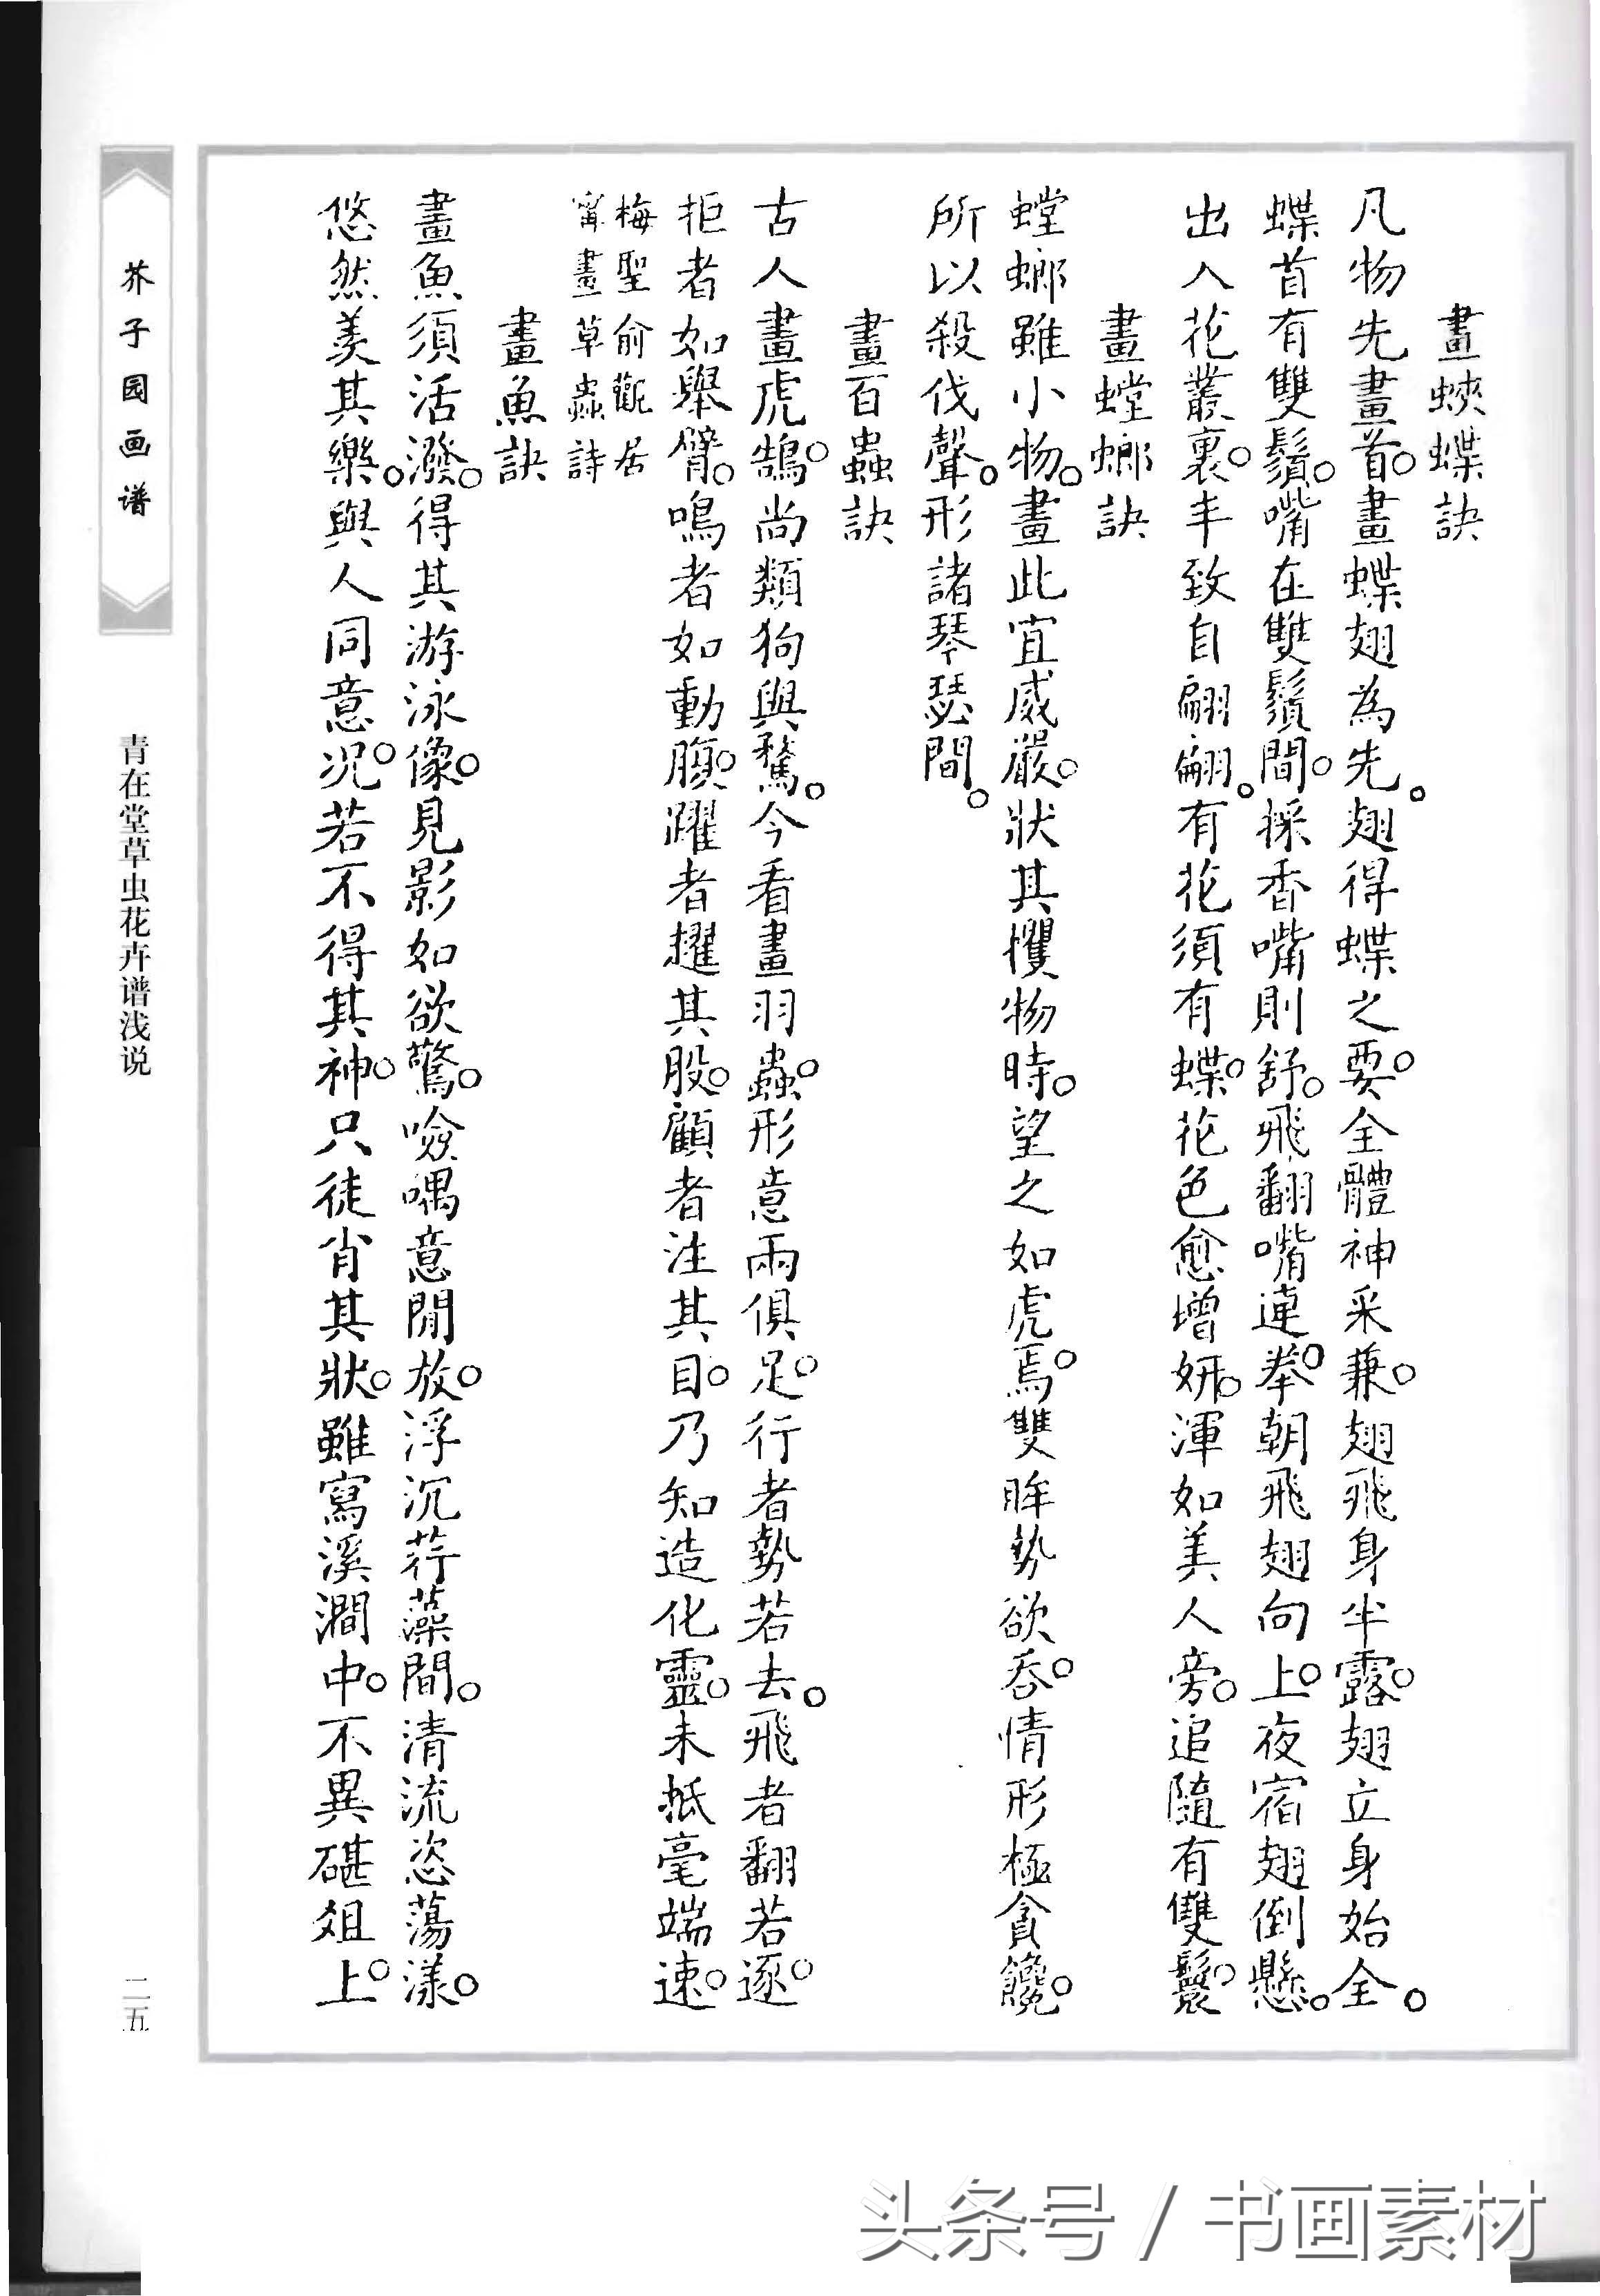 畫蛺蝶訣
凡物先畫首。畫蝶翅為先。翅得蝶之要。全體神采兼。翅飛身半露。翅立身始全。
蝶首有雙鬚。嘴在雙鬚間。採香嘴則舒。飛翻嘴連拳。朝飛翅向上。夜宿翅倒懸。
出入花叢裏。丰致自翩翩。有花須有蝶。花色愈增妍。渾如美人旁。追隨有雙鬟。
畫螳螂訣
螳螂雖小物。畫此宜威嚴。狀其攫物時。望之如虎焉。雙眸勢欲吞。情形極貪饞。
所以殺伐聲。形諸琴瑟間。
畫百蟲訣
古人畫虎鵠。尚類狗與鶩。今看畫羽蟲。形意兩俱足。行者勢若去。飛者翻若逐。
拒者如舉臂。鳴者如動腹。躍者趯其股。顧者注其目。乃知造化靈。未抵毫端速。
梅聖俞觀居
甯畫草蟲詩
畫魚訣
畫魚須活潑。得其游泳像。見影如欲驚。噞喁意閒放。浮沉荇藻間。清流恣蕩漾。
悠然羡其樂。與人同意況。若不得其神。只徒肖其狀。雖寫溪澗中。不異碪俎上。
芥子园画谱
青在堂草虫花卉谱浅说
二五
头条号/书画素材